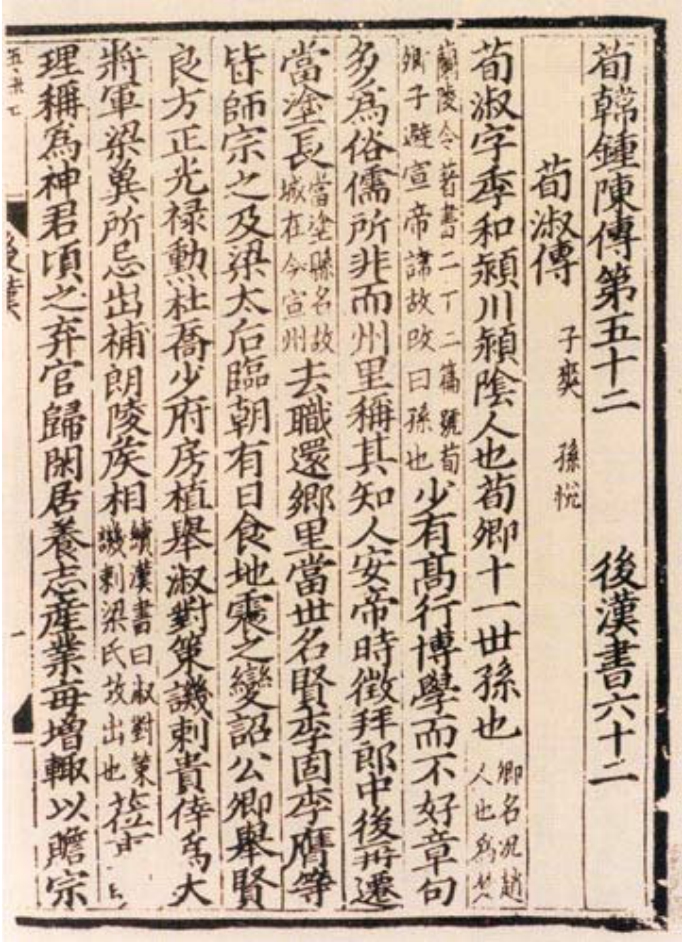 荀韓鍾陳傳第五十二　後漢書六十二
荀淑傳　子爽　孫悅
荀淑字季和潁川潁陰人也荀卿十一世孫也卿名況趙人也爲楚
蘭陵令著書二十二篇號荀卿子避宣帝諱故改曰孫也少有高行博學而不好章句
多爲俗儒所非而州里稱其知人安帝時徵拜郎中後再遷
當塗長當塗縣名故城在今宣州去職還鄉里當世名賢李固李膺等
皆師宗之及梁太后臨朝有日食地震之變詔公卿舉賢
良方正光祿勳杜喬少府房植舉淑對策譏刺貴倖爲大
將軍梁冀所忌出補朗陵侯相續漢書曰淑對策譏刺梁氏故出也莅事
理稱爲神君頃之弃官歸閑居養志產業每增輒以贍宗
後漢